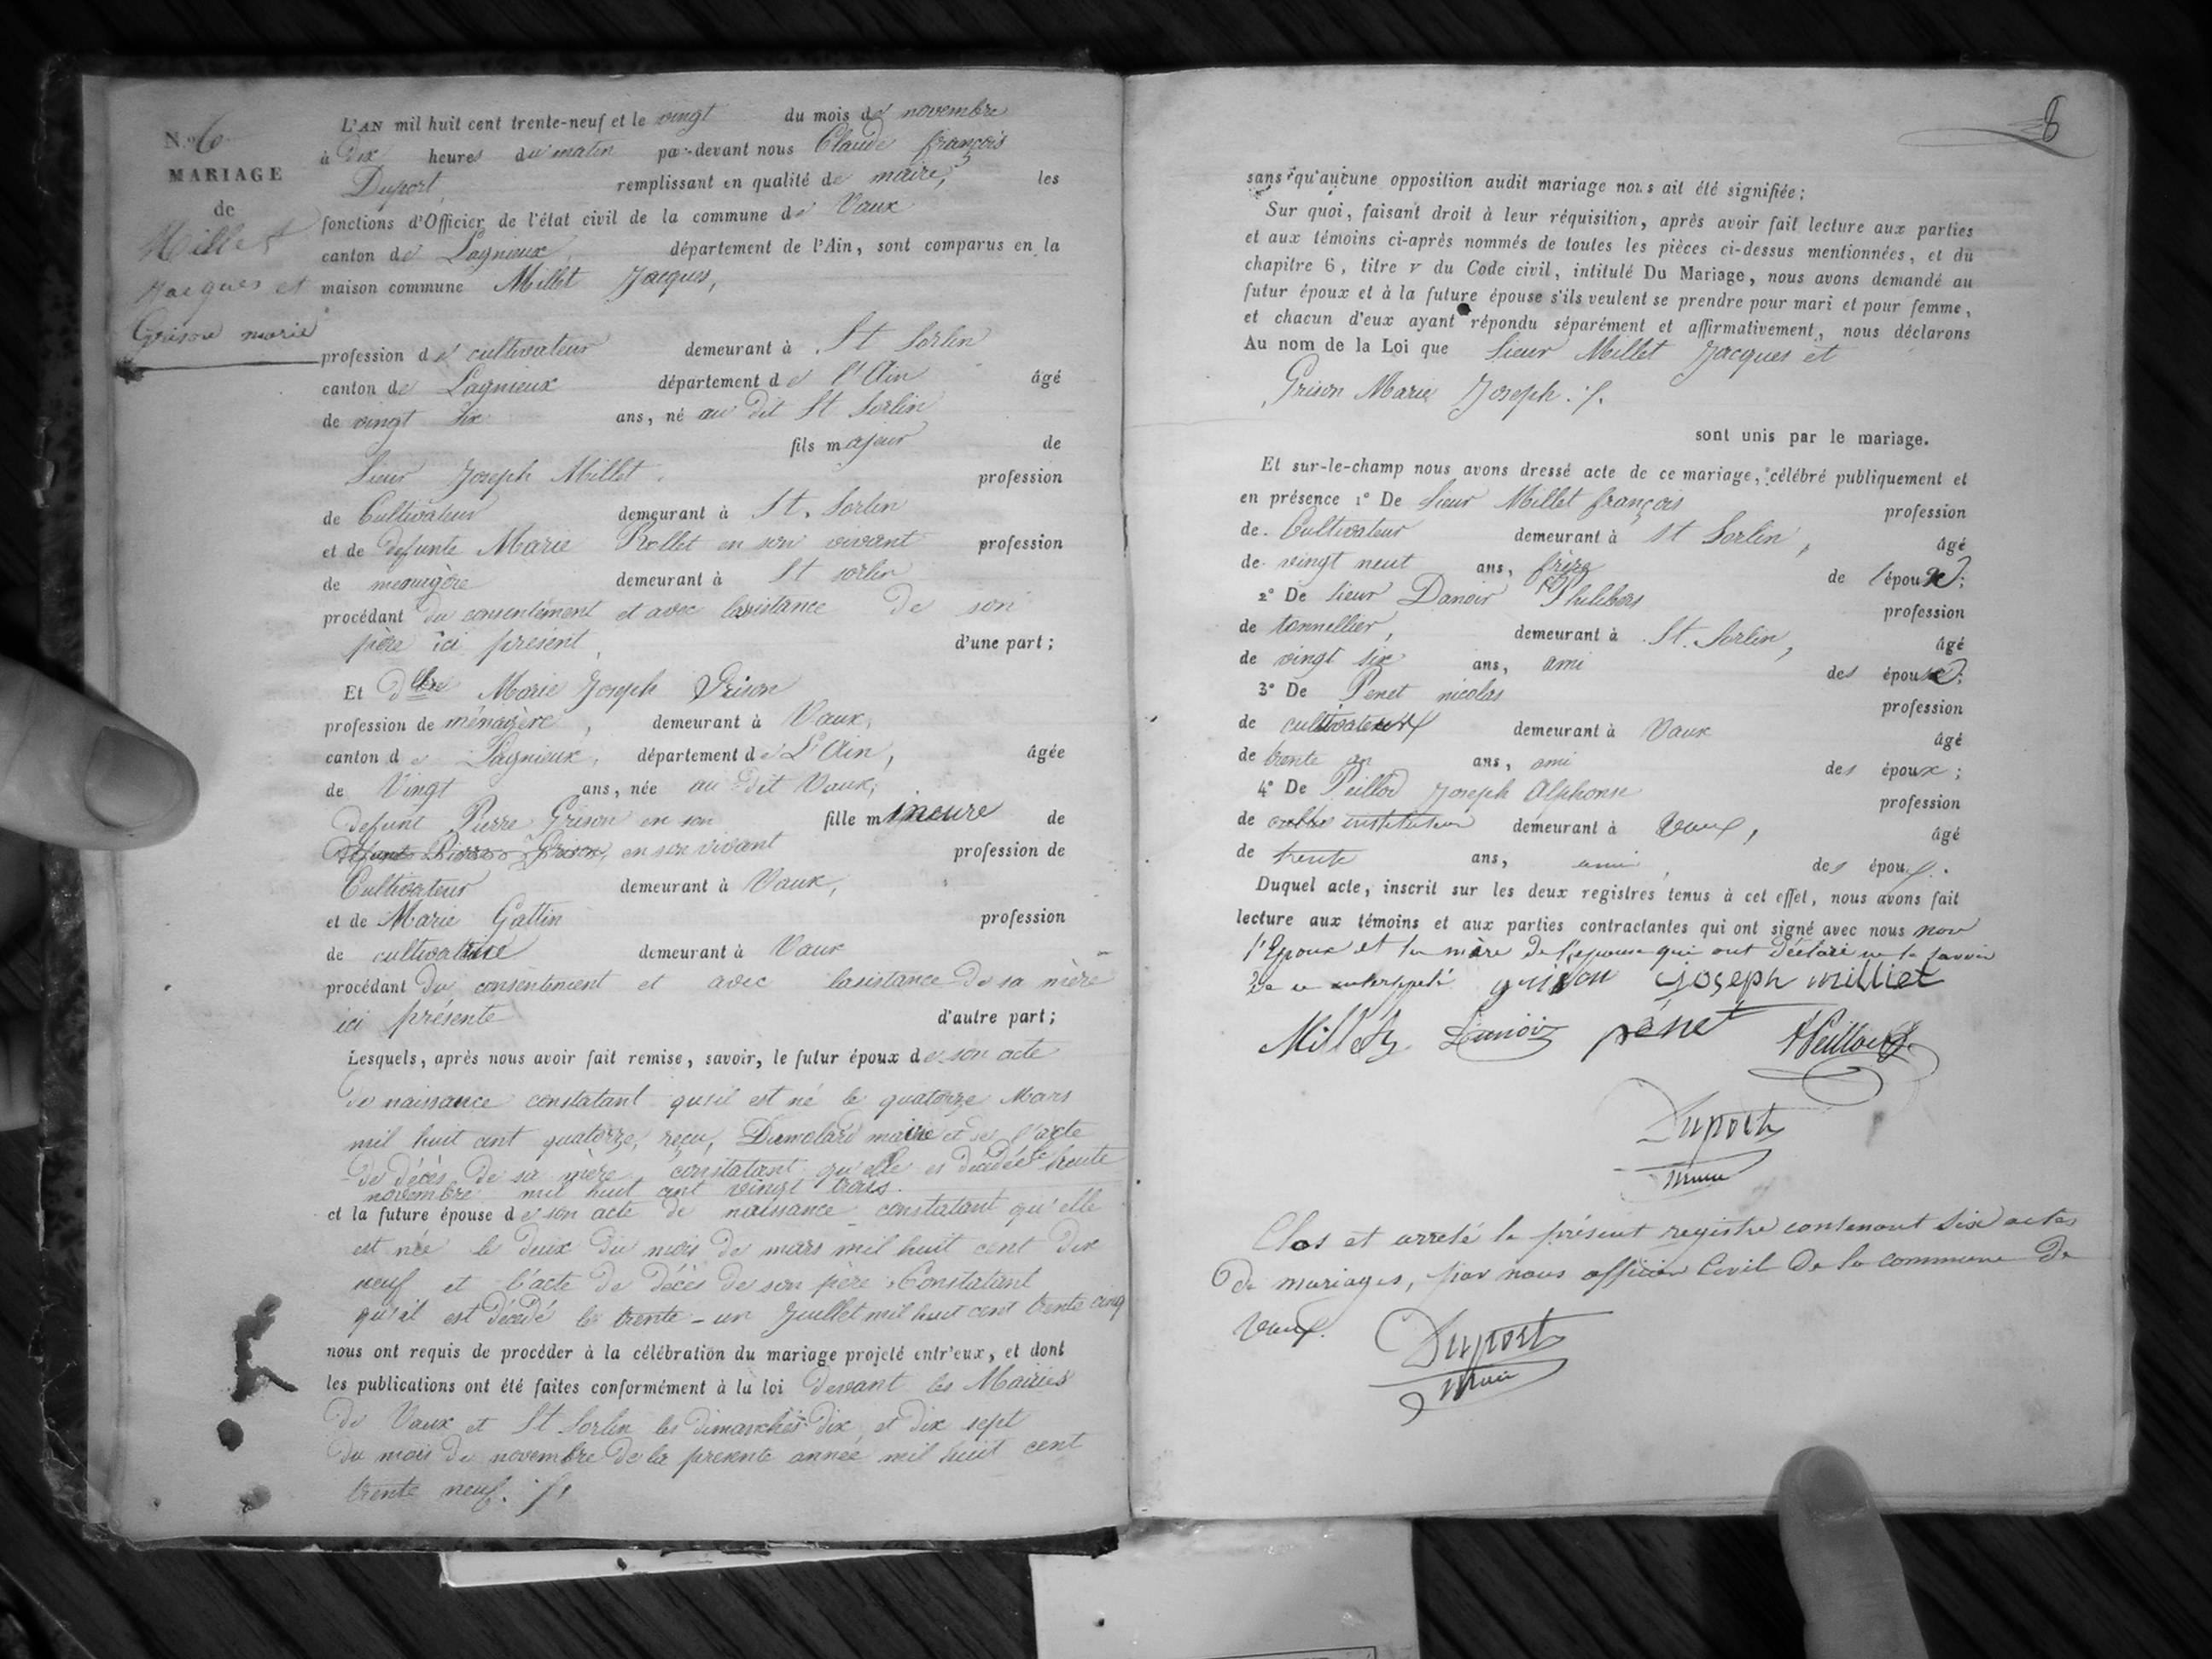 N.º 6
MARIAGE
de
Millet
Jacques et
Grison marie
L'AN mil huit cent trente-neuf et le vingt du mois de novembre
à Dix heures du matin par-devant nous Claude françois
Duport remplissant en qualité de maire, les
fonctions d'Officier de l'état civil de la commune de Vaux
canton de Lagnieux, département de l'Ain, sont comparus en la
maison commune Millet Jacques,
profession de cultivateur demeurant à St Sorlin
canton de Lagnieux département de l'Ain âgé
de vingt six ans, né au dit St Sorlin
fils majeur de
Sieur Joseph Millet. profession
de Cultivateur demeurant à St. Sorlin
et de defunte Marie Rollet en son vivant profession
de menagère demeurant à St sorlin
procédant du consentement et avec lasistance de son
père ici present, d'une part;
Et dlle Marie Joseph Grison
profession de ménagère, demeurant à Vaux,
canton de Lagnieux, département de L'Ain, âgée
de Vingt ans, née au dit Vaux,
defunt Pierre Grison en son fille mineure de
defunt Pierre Grison, en son vivant profession de
Cultivateur demeurant à Vaux,
et de Marie Gattin profession
de cultivatrice demeurant à Vaux
procédant du consentement et avec lasistance de sa mère
ici présente d'autre part;
Lesquels, après nous avoir fait remise, savoir, le futur époux de son acte
de naissance constatant qu'il est né le quatorze Mars
mil huit cent quatorze, reçu, Dumolard maire et de l'acte
de décès de sa mère constatant qu'elle es decedée le trente
novembre mil huit cent vingt trois.
et la future épouse de son acte de naissance constatant qu'elle
est née le deux du mois de mars mil huit cent dix
neuf et l'acte de décès de son père Constatant
qu'il est décédé le trente-un Juillet mil huit cent trente cinq
nous ont requis de procéder à la célébration du mariage projeté entr'eux, et dont
les publications ont été faites conformément à la loi devant les Mairies
de Vaux et St Sorlin les dimanches dix et dix sept
du mois de novembre de la presente année mil huit cent
trente neuf. ./.
8
sans qu'aucune opposition audit mariage nous ait été signifiée;
Sur quoi, faisant droit à leur réquisition, après avoir fait lecture aux parties
et aux témoins ci-après nommés de toutes les pièces ci-dessus mentionnées, et du
chapitre 6, titre v du Code civil, intitulé Du Mariage, nous avons demandé au
futur époux et à la future épouse s'ils veulent se prendre pour mari et pour femme,
et chacun d'eux ayant répondu séparément et affirmativement, nous déclarons
Au nom de la Loi que Sieur Millet Jacques et
Grison Marie Joseph ./.
sont unis par le mariage.
Et sur-le-champ nous avons dressé acte de ce mariage, célébré publiquement et
en présence 1° De Sieur Millet françois profession
de Cultivateur demeurant à St Sorlin, âgé
de vingt neuf ans, frère de l'époux;
2° De Sieur Danoir Philibers profession
de tonnellier, demeurant à St. Sorlin, âgé
de vingt six ans, ami des époux;
3° De Penet nicolas profession
de cultivateur demeurant à Vaux âgé
de trente un ans, ami des époux;
4° De Peillod Joseph Alphonse profession
de instituteur demeurant à Vaux, âgé
de trente ans, ami des époux.
Duquel acte, inscrit sur les deux registres tenus à cet effet, nous avons fait
lecture aux témoins et aux parties contractantes qui ont signé avec nous non
l'Epoux et la mère de l'epouse qui ont déclaré ne le savoir
De ce interppelé grison joseph milliet
Millet Danoir pénet Peillod
Duport
maire
Clos et arreté le présent registre contenant six actes
De mariages, par nous officier Civil De la commune De
Vaux.
Duport
maire